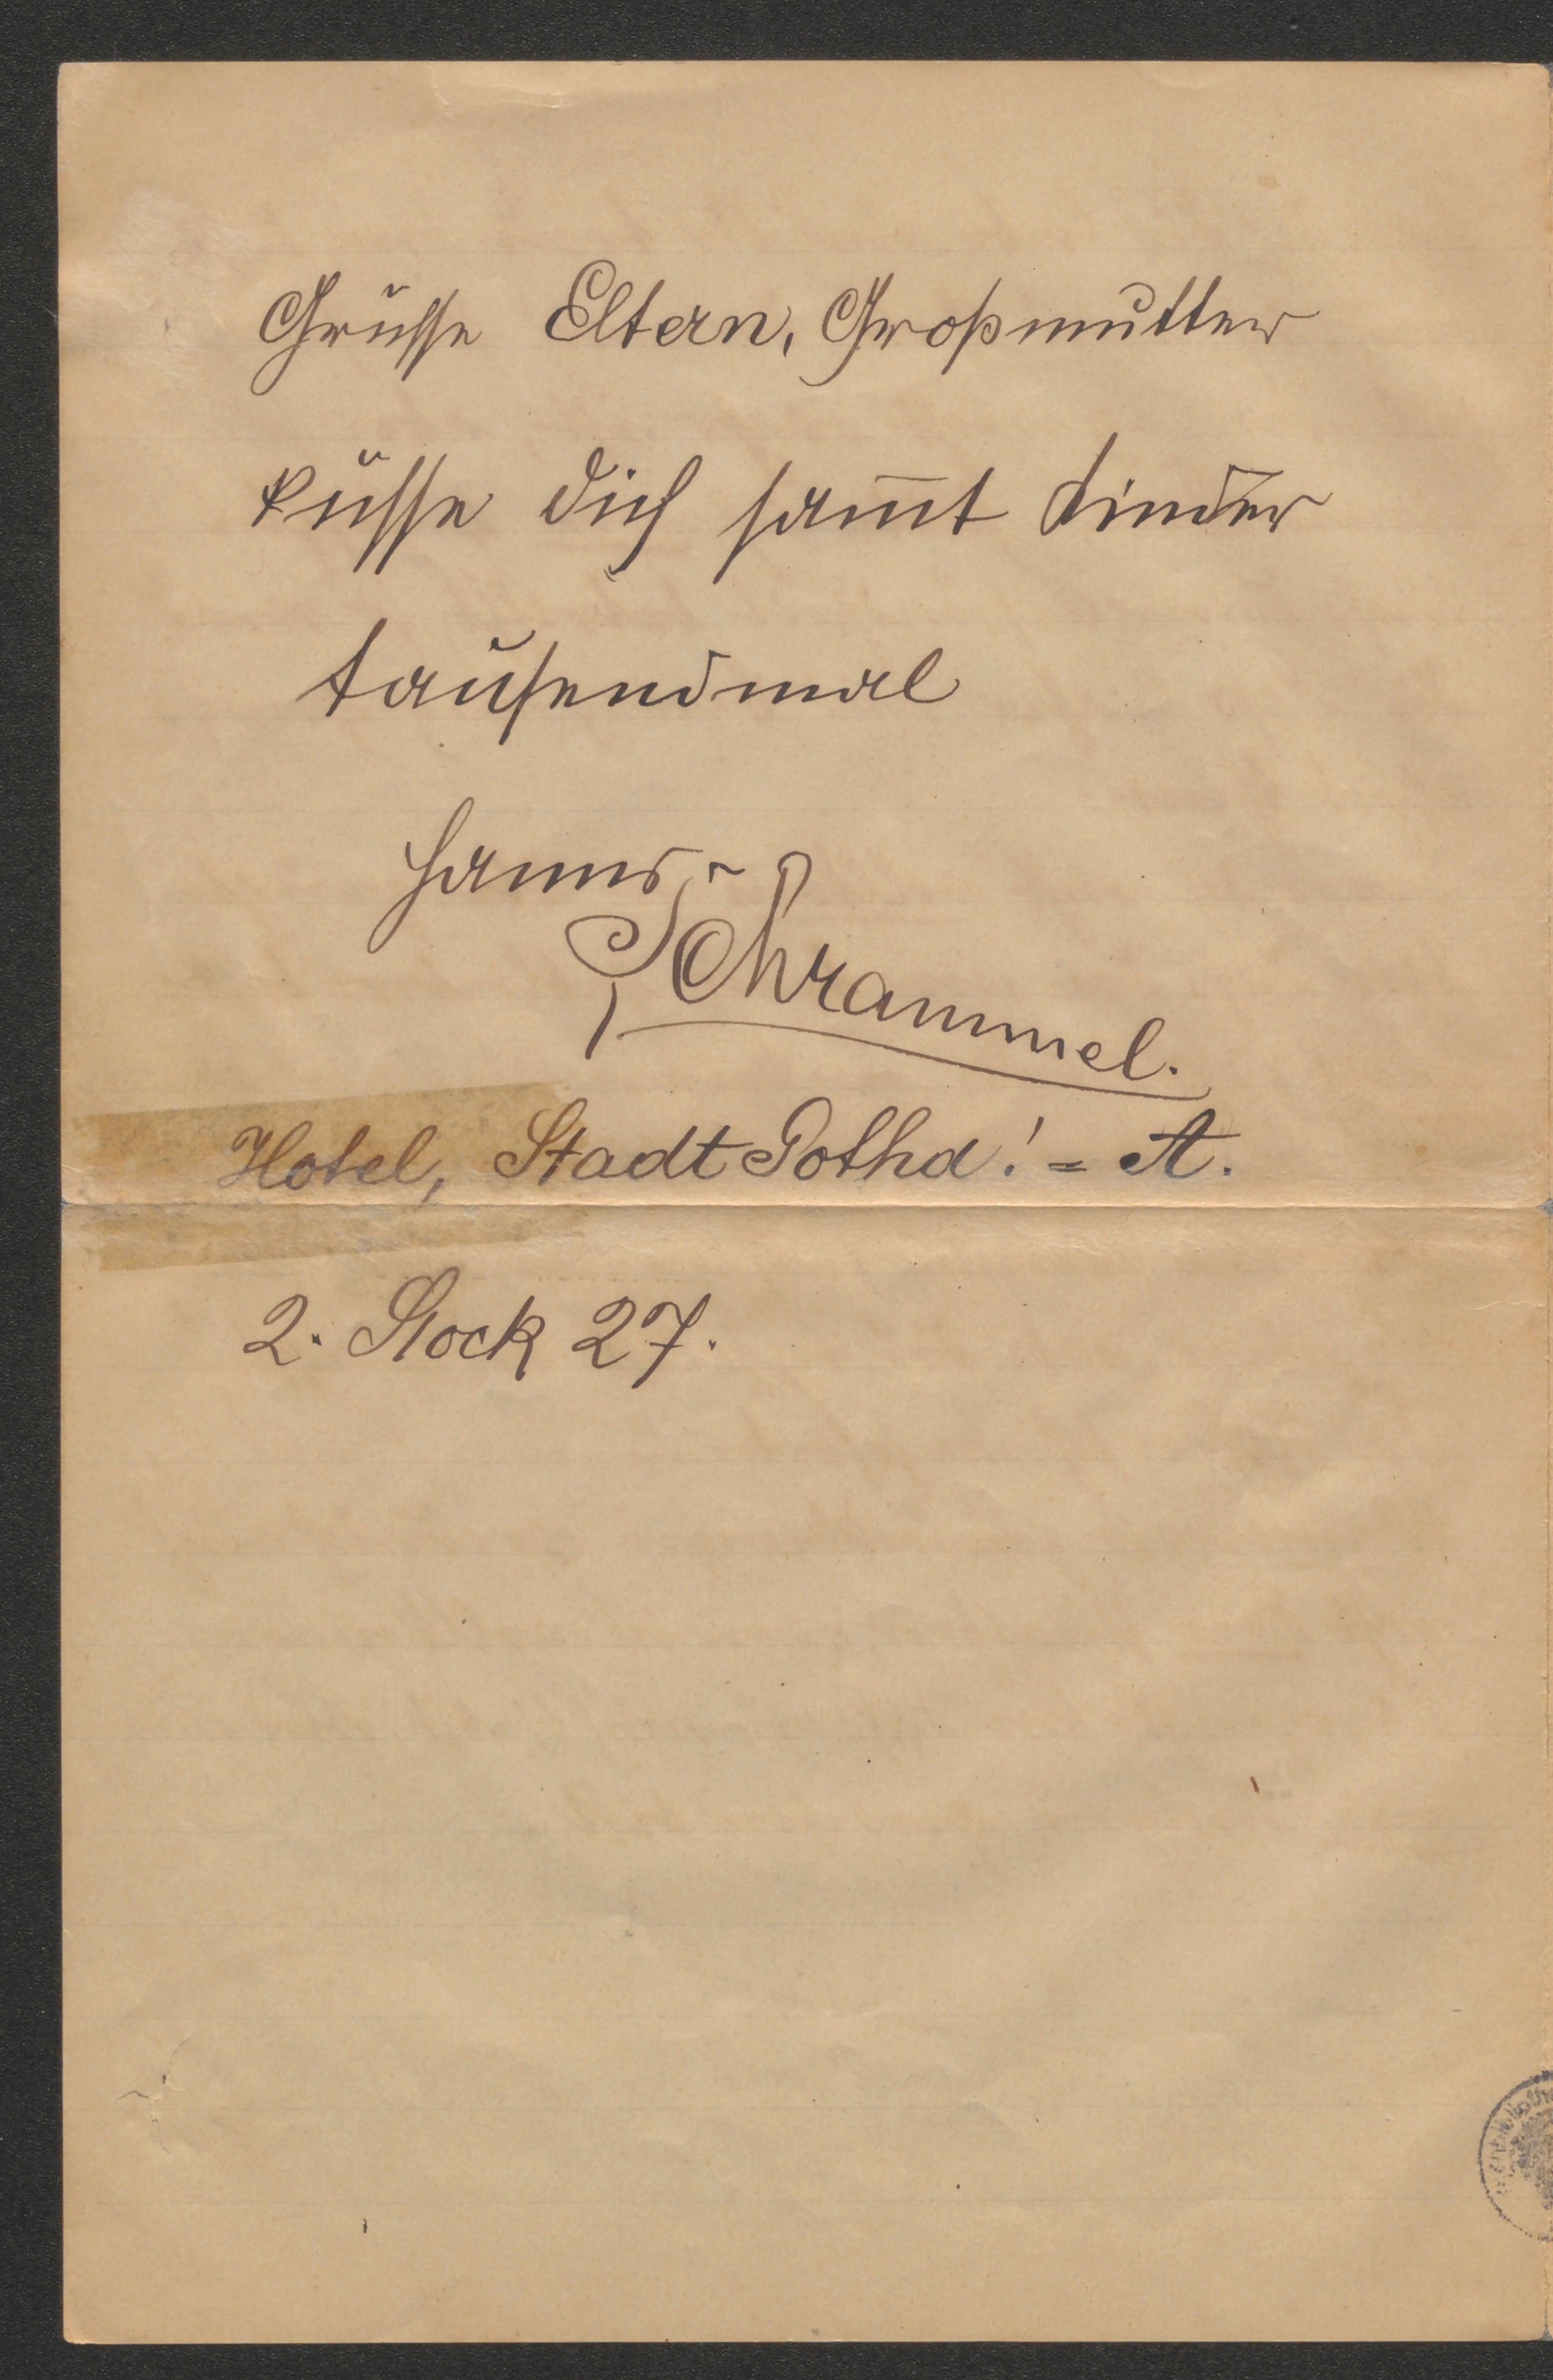 Grüsse Eltern, Großmutter
küsse dich sam̅t Kinder
tausendmal
Hanns
Schrammel.
Hotel, Stadt Gotha! = A.
2. Stock 27.